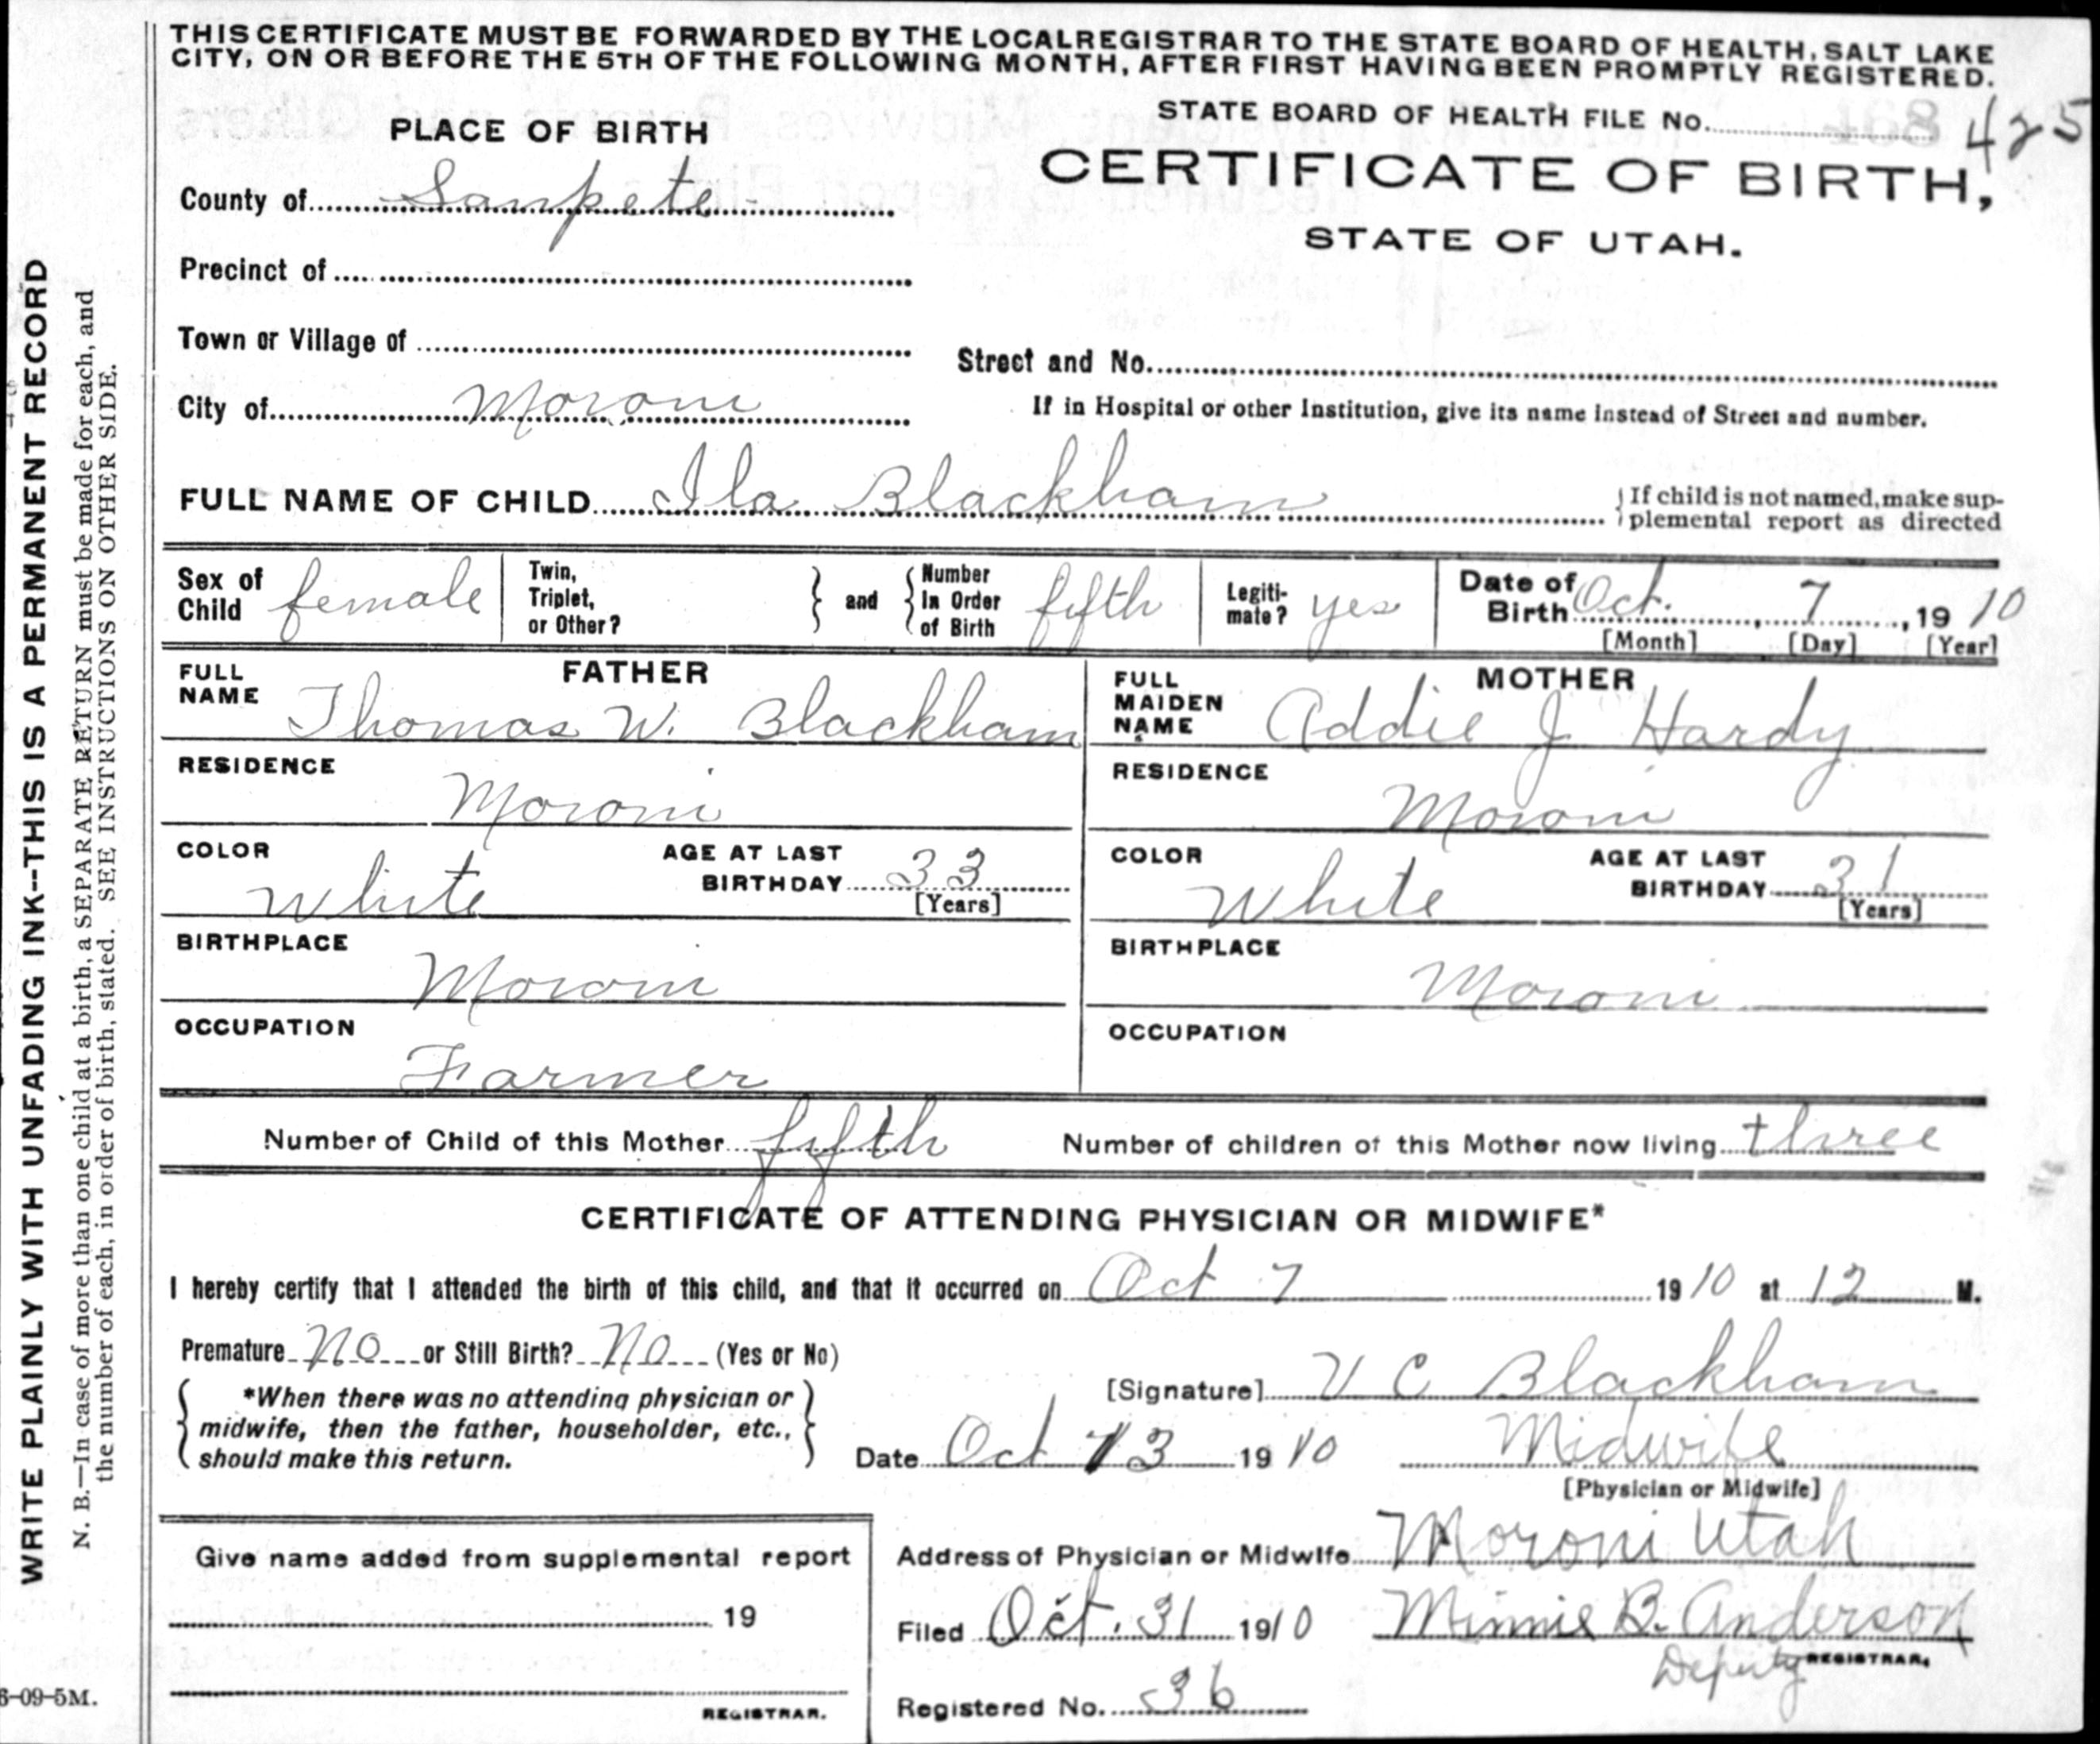 THIS CERTIFICATE MUST BE FORWARDED BY THE LOCAL REGISTRAR TO THE STATE BOARD OF HEALTH, SALT LAKE
CITY, ON OR BEFORE THE 5TH OF THE FOLLOWING MONTH, AFTER FIRST HAVING BEEN PROMPTLY REGISTERED.
STATE BOARD OF HEALTH FILE No. 425
PLACE OF BIRTH
CERTIFICATE OF BIRTH,
STATE OF UTAH.
County of Sanpete
Precinct of
Town or Village of
Street and No.
City of Moroni
If in Hospital or other Institution, give its name instead of Street and number.
FULL NAME OF CHILD Ila Blackham
If child is not named, make sup-
plemental report as directed
Sex of Child female
Twin, Triplet, or Other?
and
Number In Order of Birth fifth
Legiti-mate? yes
Date of Birth Oct. 7, 1910
[Month] [Day] [Year]
FATHER
FULL NAME Thomas W. Blackham
RESIDENCE
Moroni
COLOR White
AGE AT LAST BIRTHDAY 33
[Years]
BIRTHPLACE
Moroni
OCCUPATION
Farmer
MOTHER
FULL MAIDEN NAME Addie J Hardy
RESIDENCE
Moroni
COLOR White
AGE AT LAST BIRTHDAY 31
[Years]
BIRTHPLACE
Moroni
OCCUPATION
Number of Child of this Mother fifth
Number of children of this Mother now living three
CERTIFICATE OF ATTENDING PHYSICIAN OR MIDWIFE*
I hereby certify that I attended the birth of this child, and that it occurred on Oct 7 1910 at 12 M.
Premature No or Still Birth? No (Yes or No)
*When there was no attending physician or
midwife, then the father, householder, etc.,
should make this return.
[Signature] V C Blackham
Date Oct 13 1910
Midwife
[Physician or Midwife]
Give name added from supplemental report
19
REGISTRAR.
Address of Physician or Midwife Moroni Utah
Filed Oct. 31 1910 Minnie B. Anderson
Deputy REGISTRAR.
Registered No. 36
WRITE PLAINLY WITH UNFADING INK--THIS IS A PERMANENT RECORD
N. B.—In case of more than one child at a birth, a SEPARATE RETURN must be made for each, and
the number of each, in order of birth, stated. SEE INSTRUCTIONS ON OTHER SIDE.
6-09-5M.